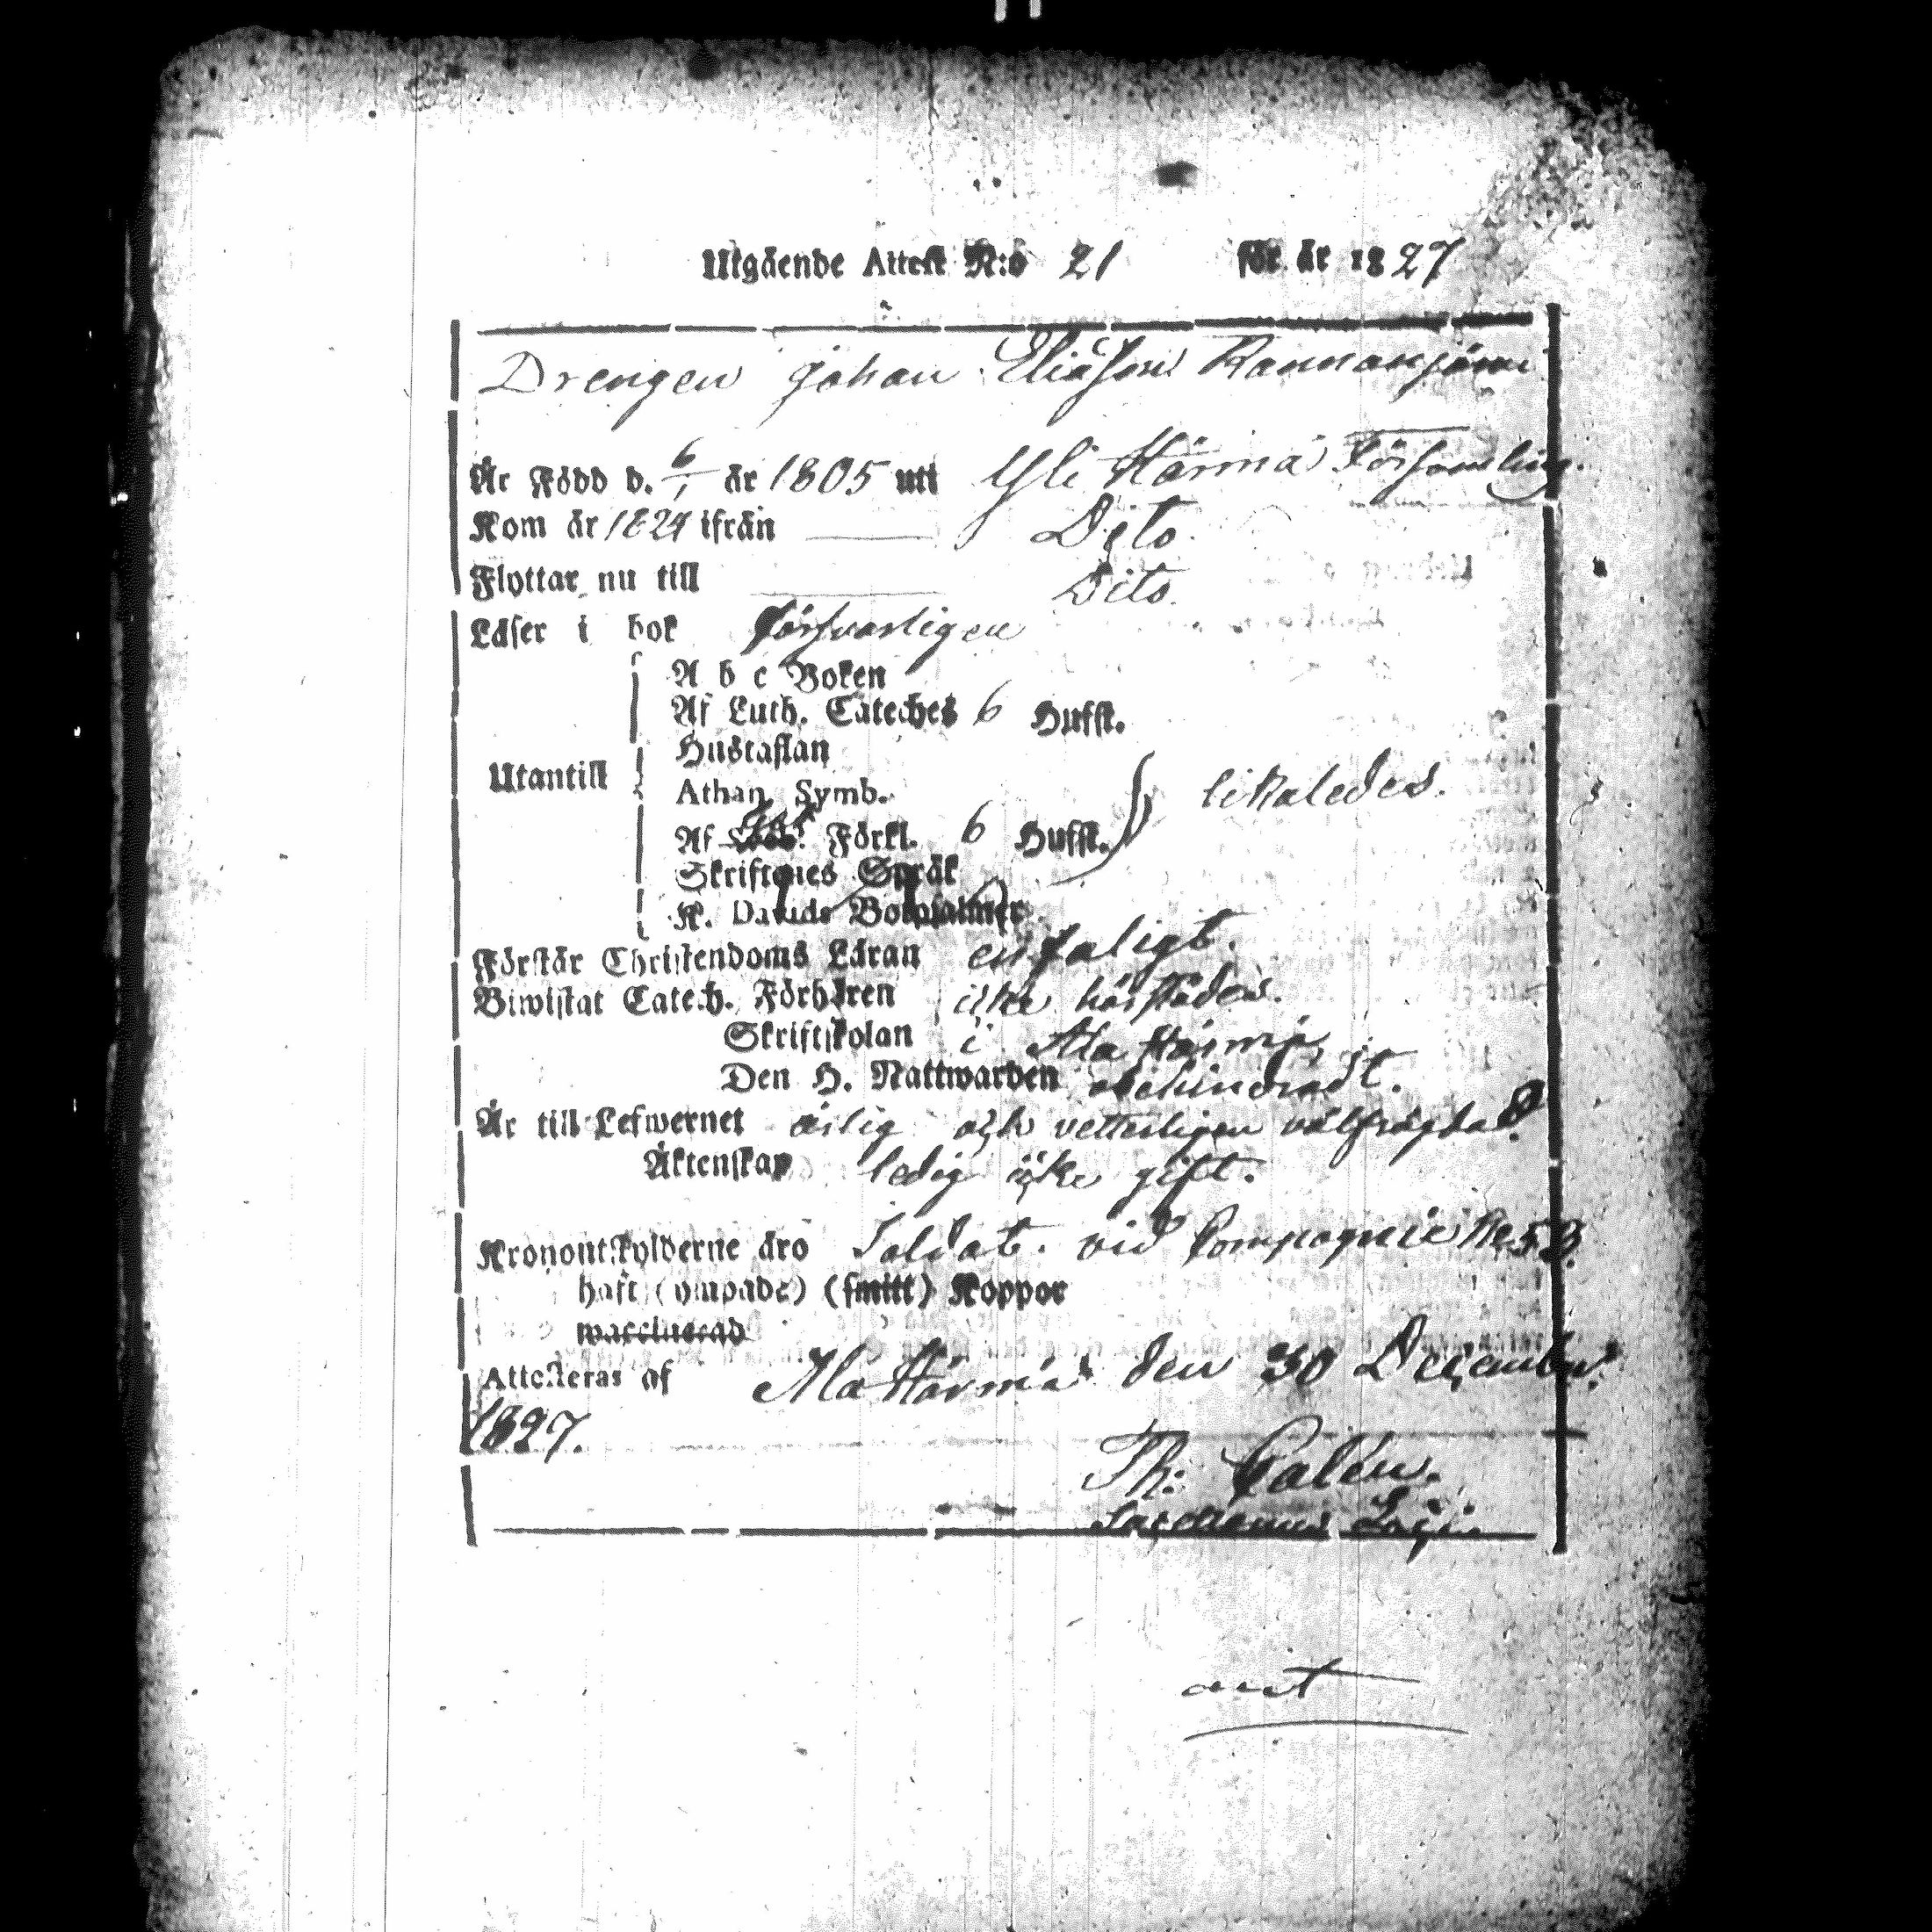 Utgående Attest N:o 21 för år 1827
Drengen Johan Eliasson Rannanjärvi
Är Född d. 6/1 år 1805 uti Yli Härmä Församling.
Kom år 1824 ifrån Dito.
Flyttar nu till Dito.
Läser i bok försvarligen
A b c Boken
Af Luth. Cateches 6 Hufst.
Hustaflan
Utantill
Athan. Symb. likaledes.
Af Förkl. 6 Hufst.
Skriftenes Språk
K. Davids Botpsalmer
Förstår Christendoms Läran enfaligt.
Biwistat Catech. Förhören icke härstädes.
Skriftskolan i Ala Härmä
Den H. Nattwarden obehindradt.
Är till Lefwernet ärlig och vetterligen välfrägdad.
Äktenskap ledig icke gift.
Kronoutskylderne äro Soldat. vid Compagniet No 53
haft (ympade) (smitt) Koppor
waccinerad
Attesteras af Ala Härmä den 30 December
1827.
Th: Calén.
Sacellanus Loci.